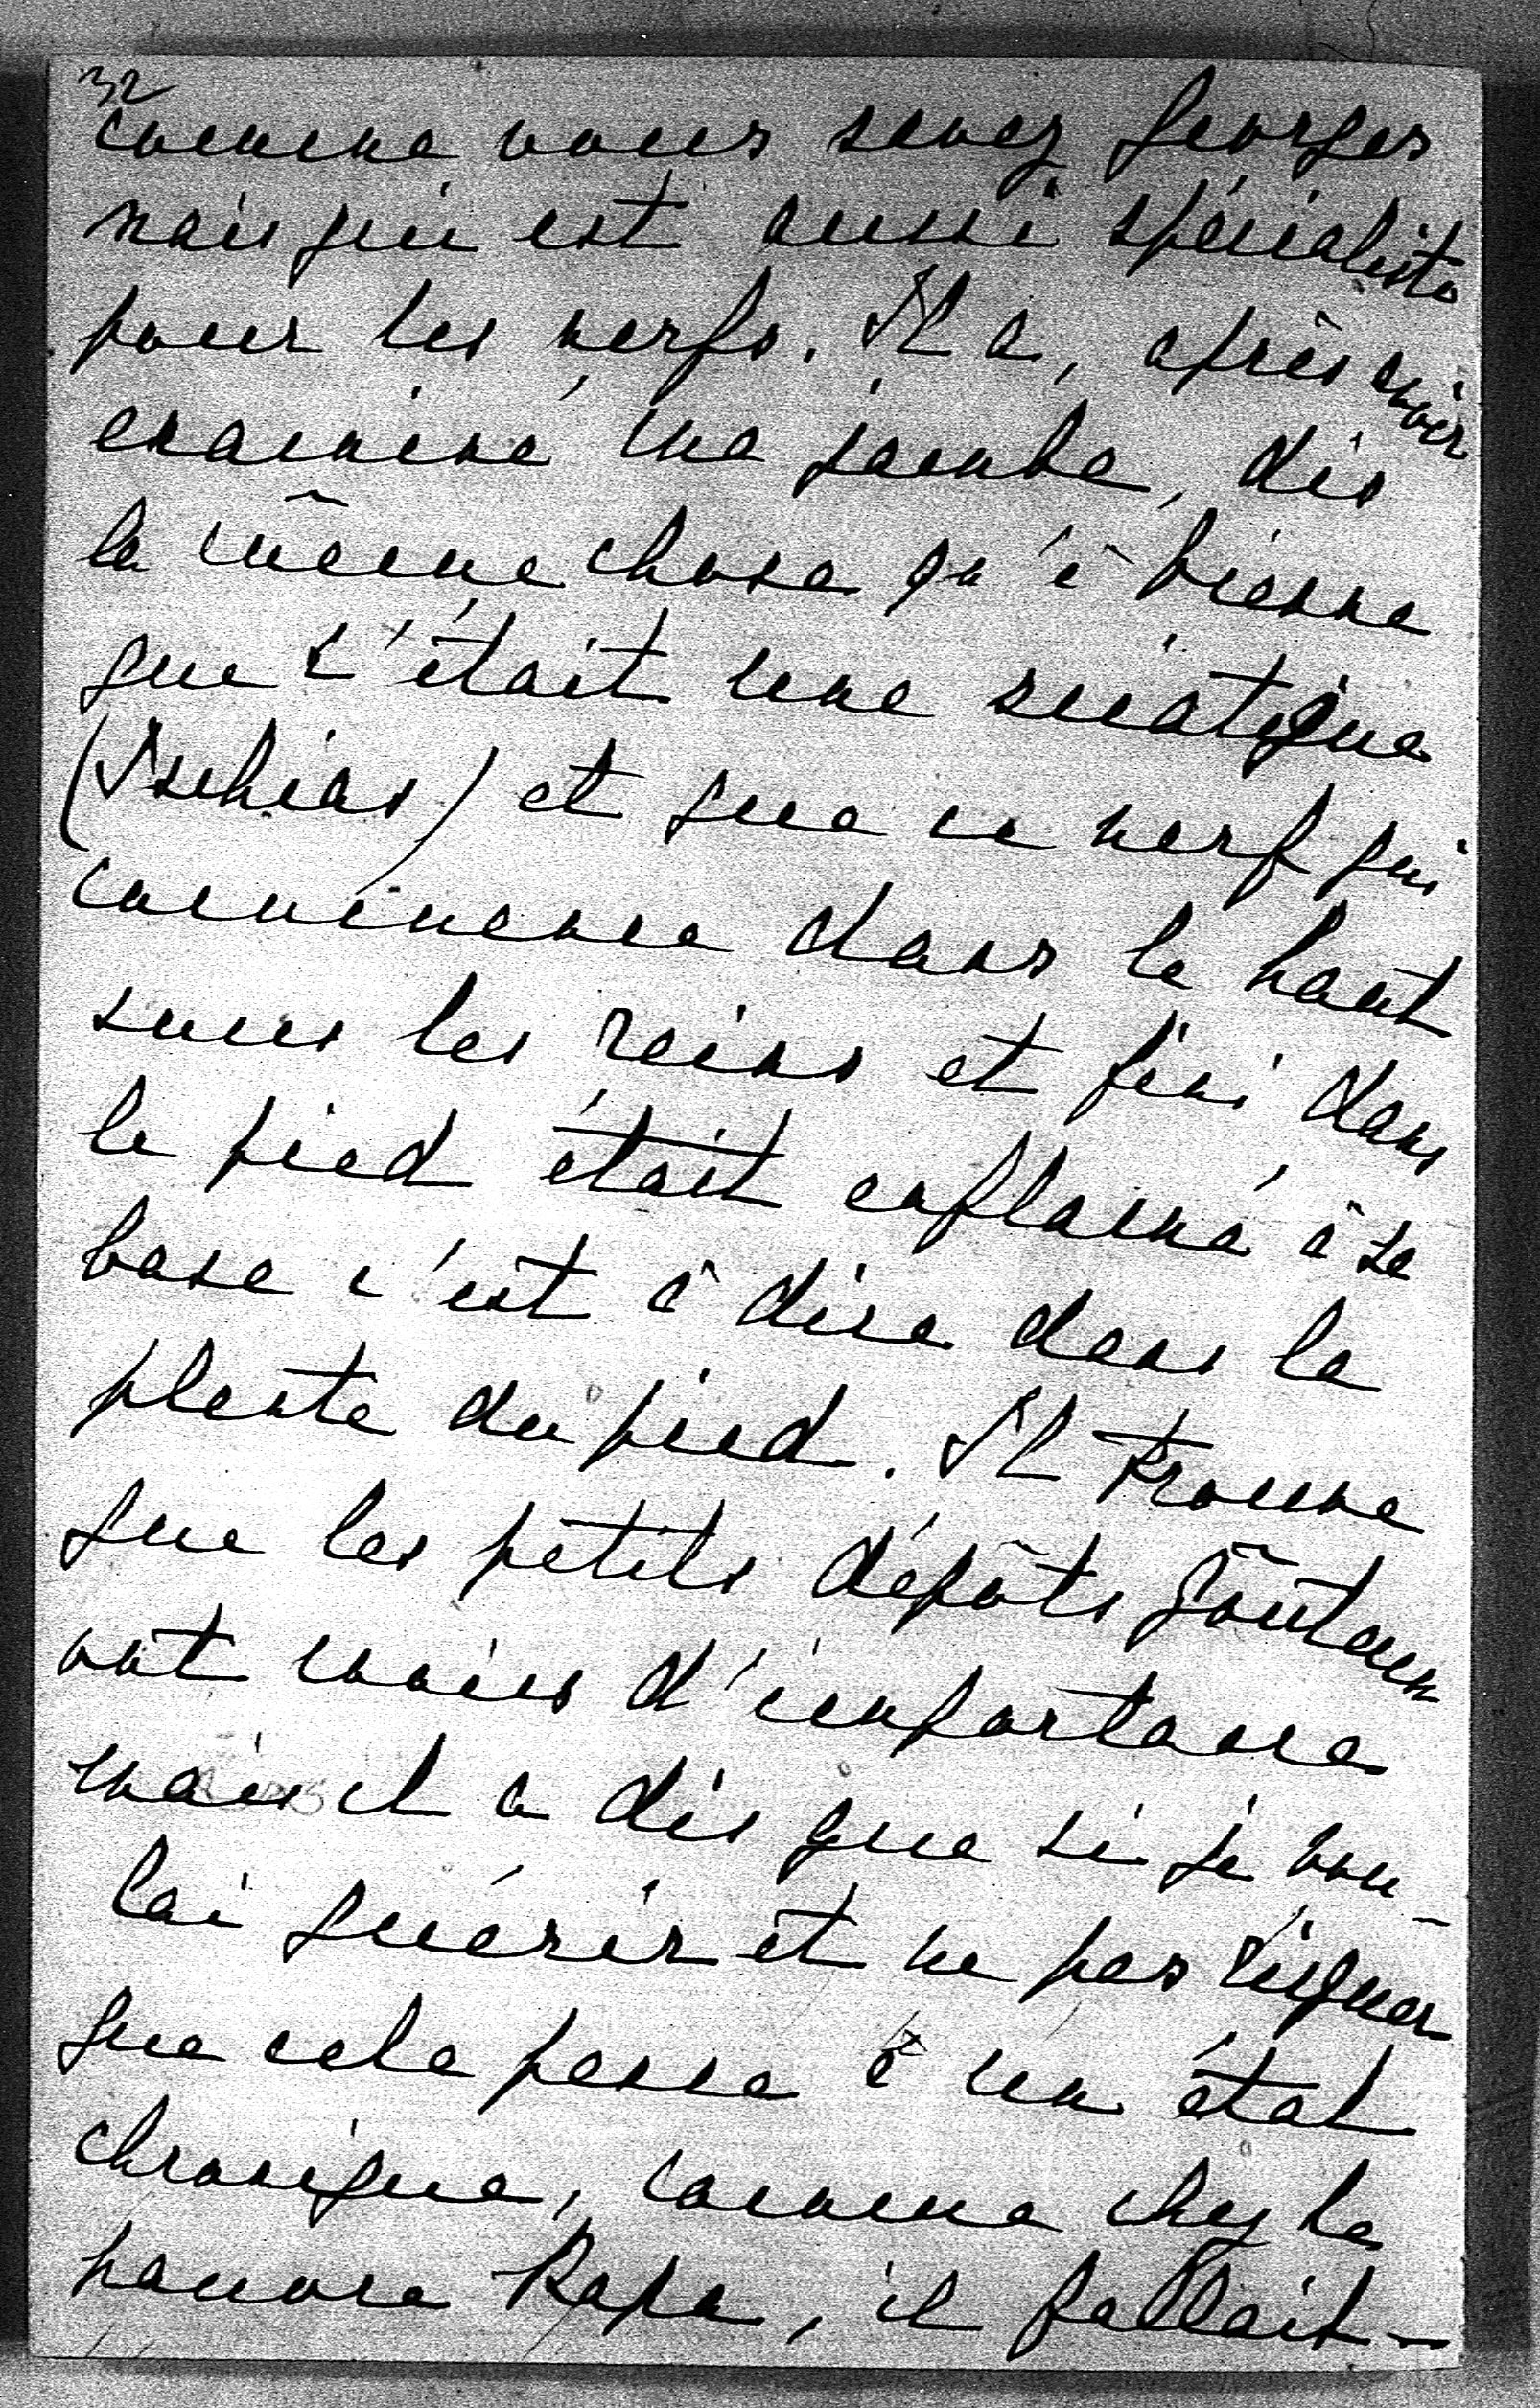 32
comme vous savez Georges
mais qui est aussi spécialiste
pour les nerfs. Il a, après avoir
examiné ma jambe, dis
la même chose qu'à Vienne
que c'était une sciatique
(Ischias) et que ce nerf qui
commence dans le haut
sous les reins et fini dans
le pied était enflamé à sa
base c'est à dire dans la
plante du pied. Il trouve
que les petits dépôts goûteux
ont moins d'importance
mais il a dis que si je vou-
lai guérir et ne pas risquer
que cela passe à un état
chronique, comme chez le
pauvre Papa, il fallait-